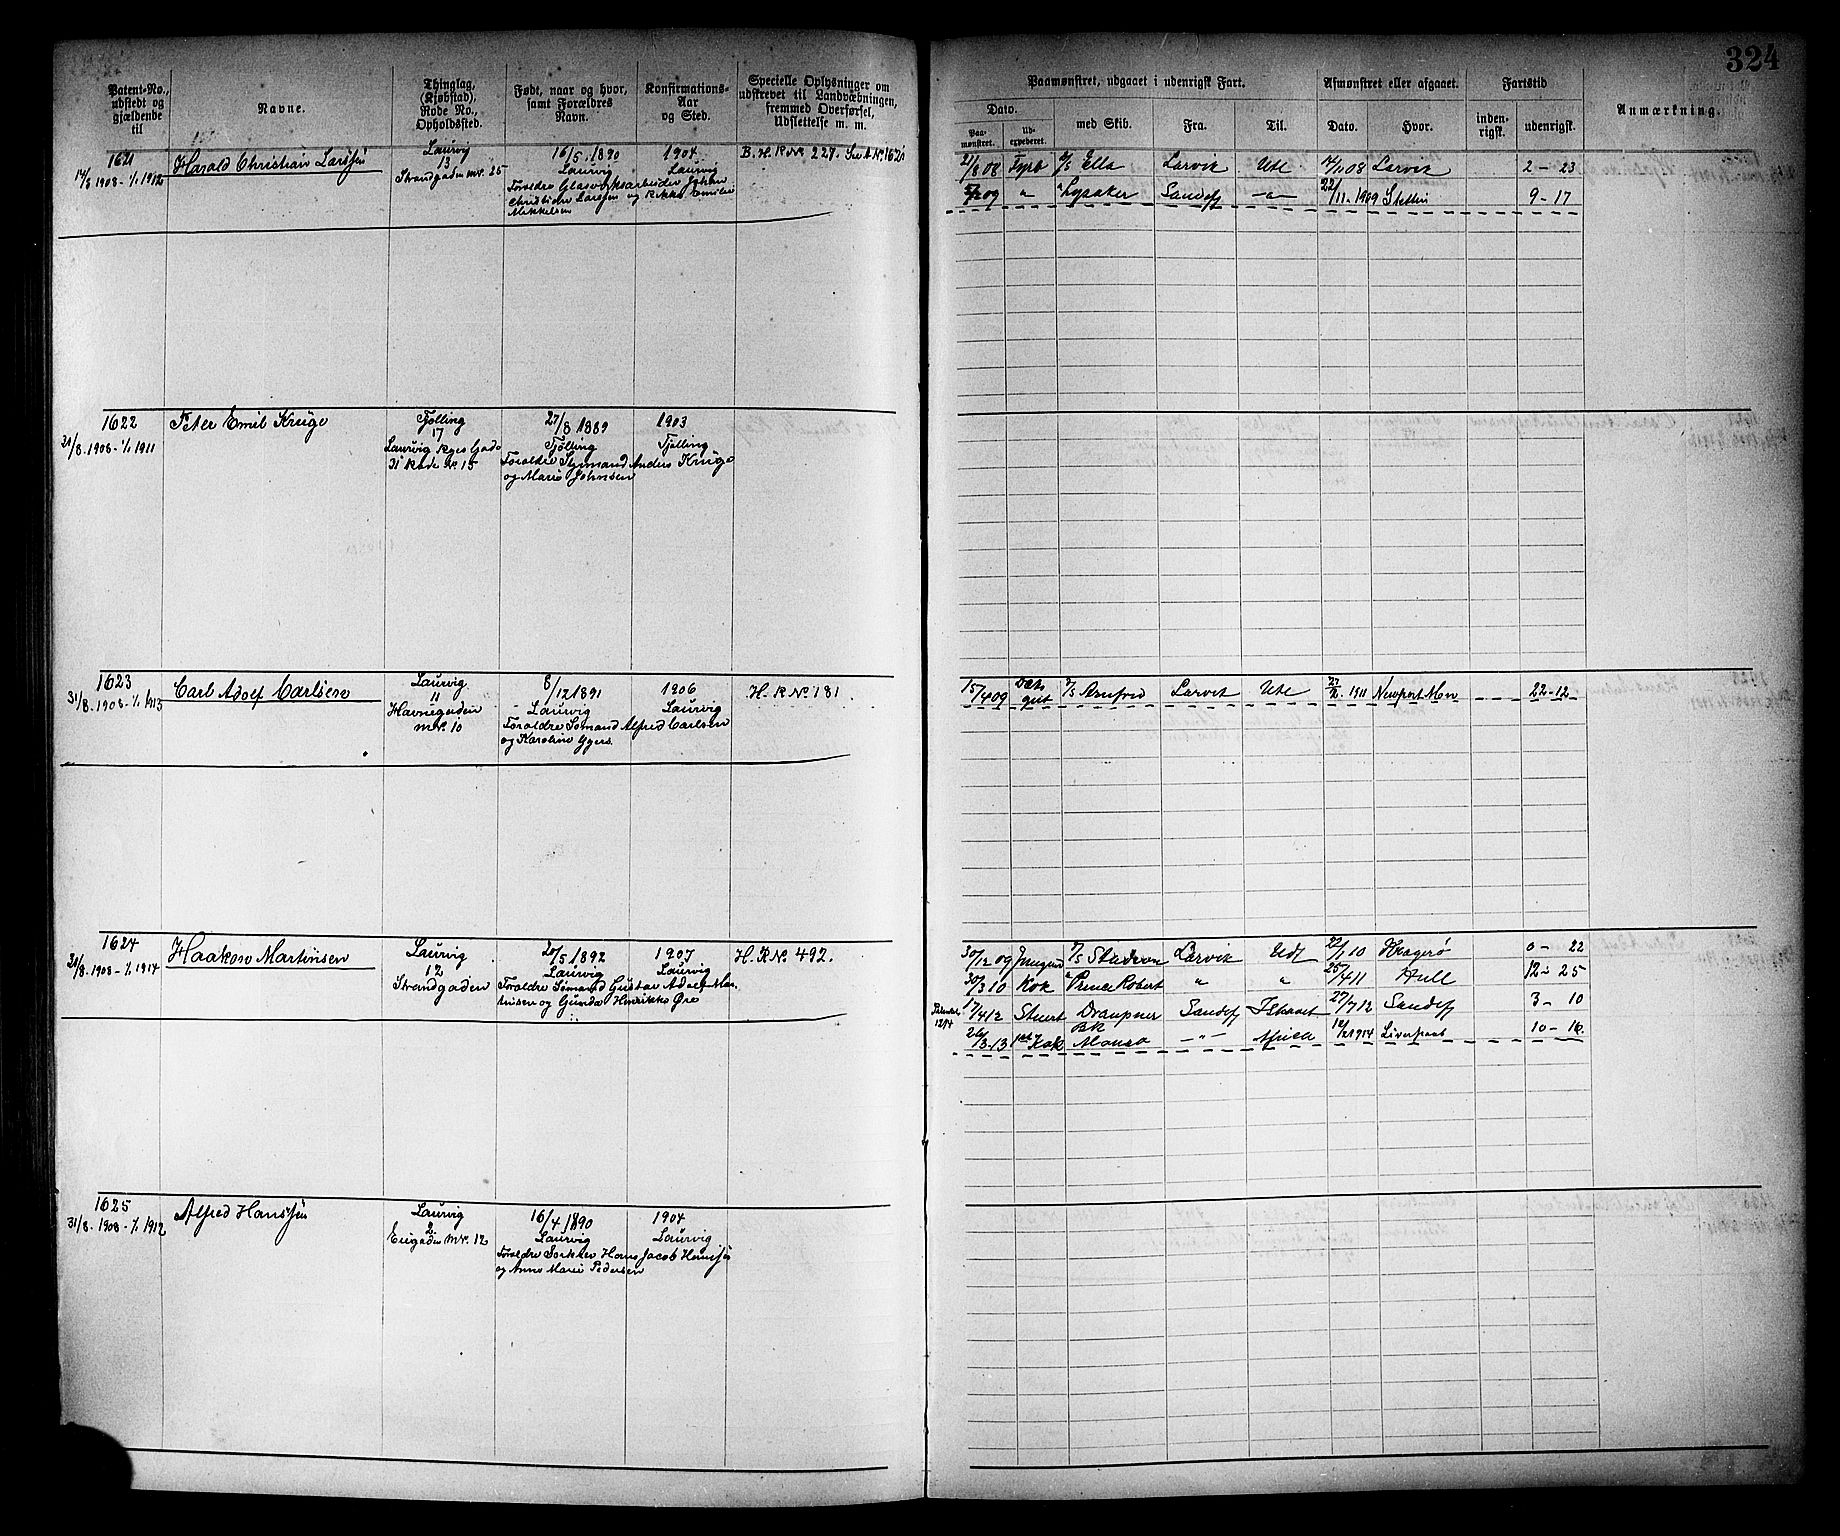 324
Patent-No., udstedt og gjældende til
Navne.
Thinglag, (Kjøbstad), Rode No., Opholdssted.
Født, naar og hvor, samt Forældres Navn.
Konfirmations-Aar og Sted.
Specielle Oplysninger om udskrevet til Landværbningen, fremmed Overførsel, Udslettelse m. m.
Paamønstret, udgaaet i udenrigsk Fart.
Afmønstret eller afgaaet.
Fartstid
Anmærkning.
Dato.
Paa-mønstret.
med Skib.
Fra.
Til.
Dato.
Hvor.
inden-rigsk.
udenrigsk.
1621
14/8 1908 - 1/1 1912
Harald Christian Larssen
Laurvig
13
Strandgaden Nr. 25
16/5 1890
Laurvig
1904
Laurvig
Forældre Glasværksarbeider Johan
Christian Larssen og Rikke Emilie
Mikkelsen
B. H. R. No. 227. Se A No.
21/8 08 Fyrb D/S Ella Larvik Utl 14/11 08 Larvik 2 - 23
09 " " Lysaker Sandefj -"- 22/11-1909 Stettin 9 - 17
1622
31/8. 1908 - 1/1 1911
Peter Emil Krüge
Tjølling
17
27/8 1889
Tjølling
1903
Tjølling
Forældre Sømand Anders Krüge
og Marie Johnsen
1623
31/8. 1908 - 1/1 1913
Carl Adolf Carlsen
Laurvig
11
Havnegaden
Nr. 10
8/12 1891
Laurvig
1906
Laurvig
Forældre Sømand Alfred Carlsen
og Karoline
H. R. No. 181.
15/4 09 Dæks gut D/S Arnfred Larvik Utl 1911 Newport Mon 22-12
1624
31/8. 1908 - 1/1 1914
Haakon Martinsen
Laurvig
12
Strandgaden
20/5 1892
Laurvig
1907
Laurvig
Forældre Sømand Gustav Adolf Mar-
tinsen og Gunda Henrikke Øre
H. R. No. 492.
30/12 09 Jungmd D/S Larvik Udl 22/1 10 Kragerø 0 - 22
30/3 10 Kok " Prince Robert " " 25/4 11 Hull 12 - 25
1294
17/4 12 Stuert Draupner Sandefj Ishavet 27/7 12 Sandefj 3 - 10
26/3. 13 1ste Kok Bk Alonso -"- Africa 1914 Liverpool 10 - 16
1625
31/8. 1908 - 1/1 1912
Alfred Hanssen
Laurvig
2
Enigaden Nr. 12
16/4 1890
Laurvig
1904
Laurvig
Forældre Hans Jacob Hanssen
og Anne Marie Pedersen